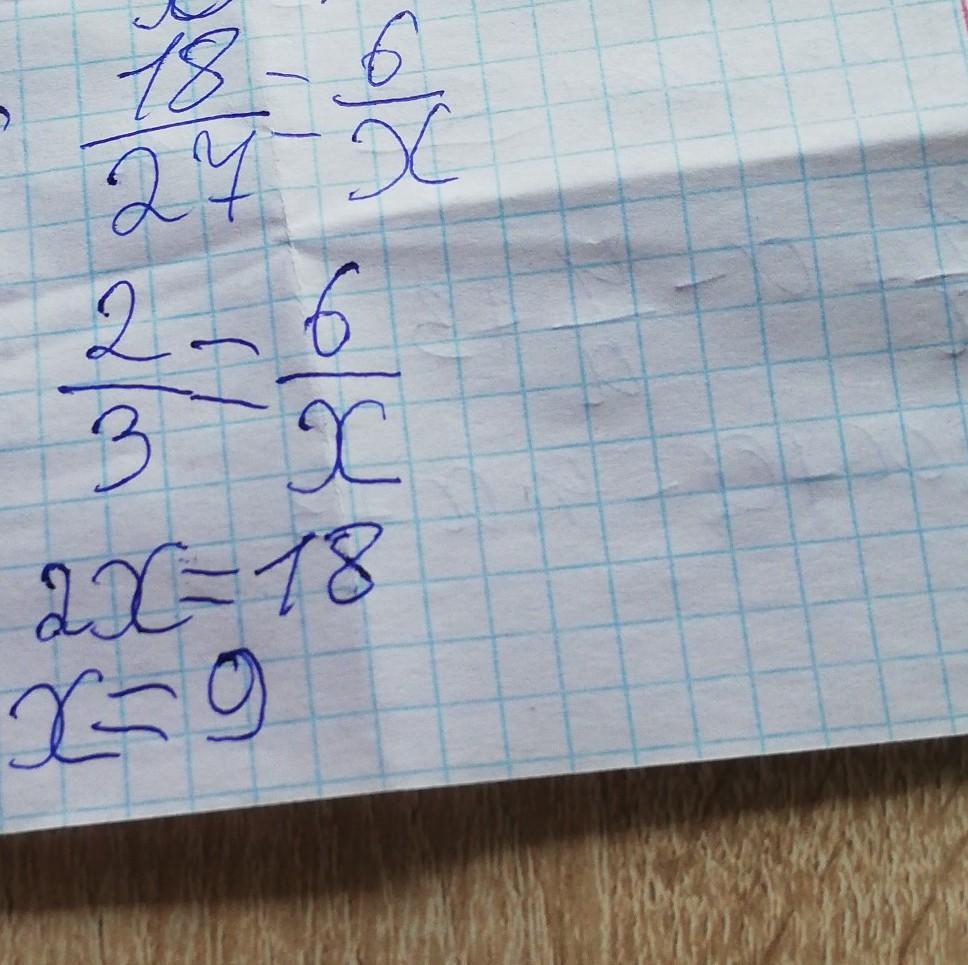 18/27 = 6/x
2/3 = 6/x
2x = 18
x = 9